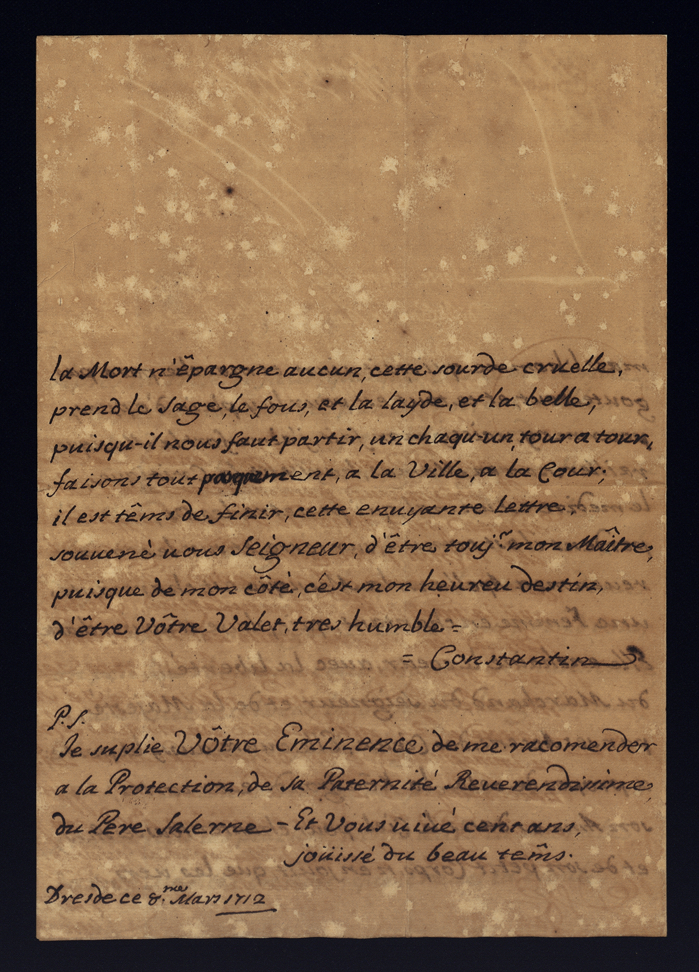 la Mort n'êpargne aucun, cette sourde cruelle,
prend le sage, le fous, et la layde, et la belle,
puisqu-il nous faut partir, un chaqu-un, tour a tour,
faisons tout a la Ville, a la Cour;
il est têms de finir, cette enuyante lettre,
souvené vous Seigneur, d'être toujr mon Maître,
puisque de mon côtè, c'est mon heureu destin,
d'être Vôtre Valet, tres humble =
= Constantin
P.S.
Je suplie Vôtre Eminence de me racomender
a la Protection, de sa Paternité Reverendisime,
du Pere Salerne - Et Vous vivé cent ans,
joüissé du beau tem̃s.
Dresde ce 8.me Mars 1712